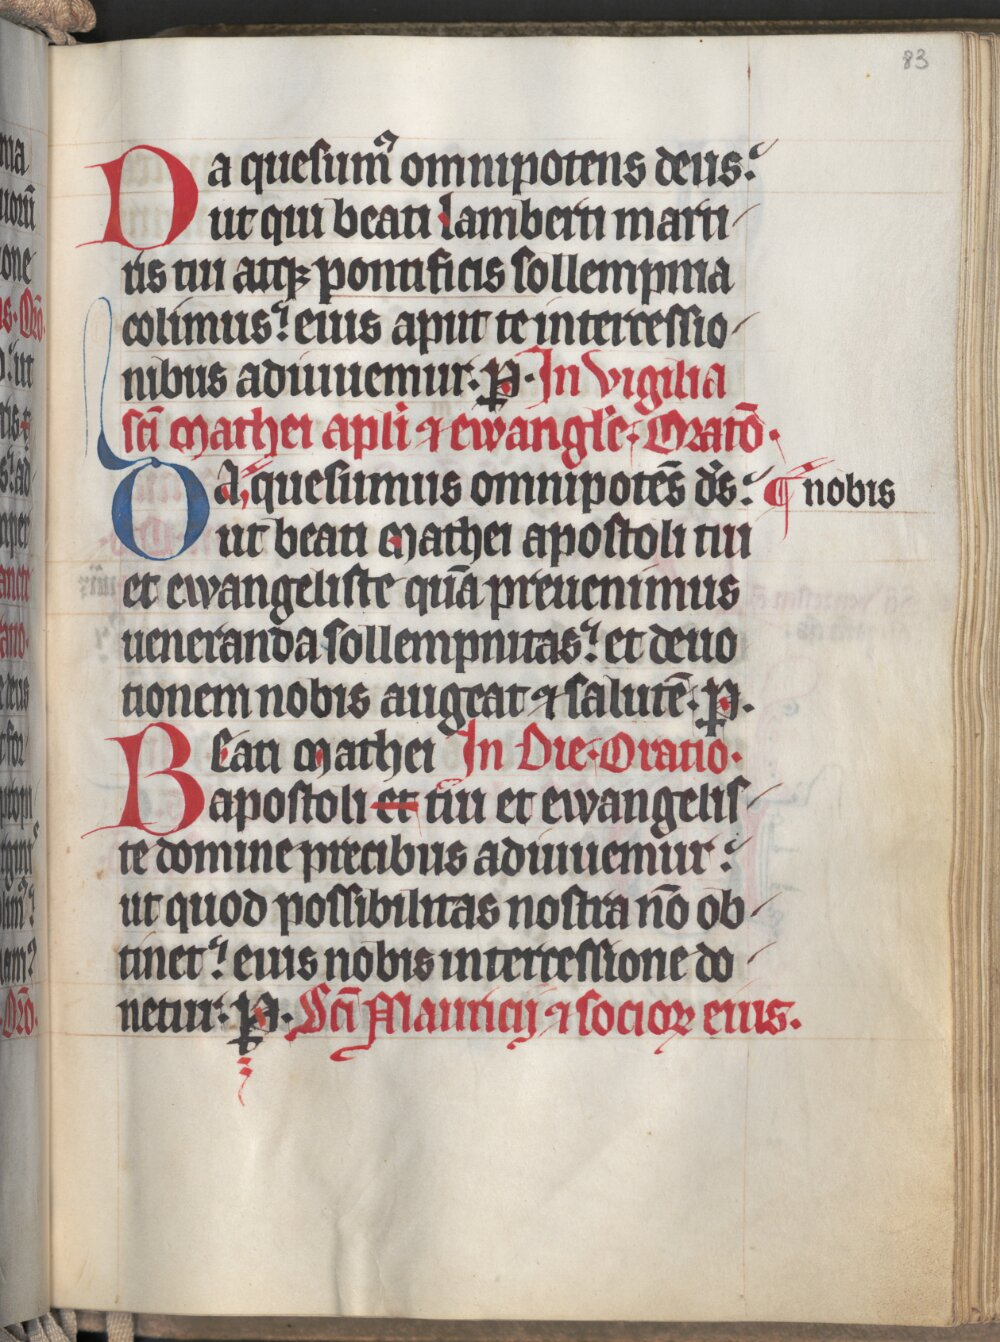 83
Da quesumꝰ omnipotens deus:
ut qui beati lamberti marti
ris tui atqꝫ pontificis sollempnia
colimus: eius aput te intercessio
nibus adiuuemur. P. In vigilia
sc̄i Mathei apl̄i ⁊ ewangl̄e. Oratō.
Da, quesumus omnipotēs ds̄: ¶ nobis
ut beati Mathei apostoli tui
et ewangeliste quā preuenimus
ueneranda sollempnitas: et deuo
tionem nobis augeat ⁊ salutē. P.
Beati Mathei In Die. Oratio.
apostoli et tui et ewangelis
te domine precibus adiuuemur:
ut quod possibilitas nostra nō ob
tinet: eius nobis intercessione do
netur. P. Sc̄i Mauricij ⁊ socioꝝ eius.